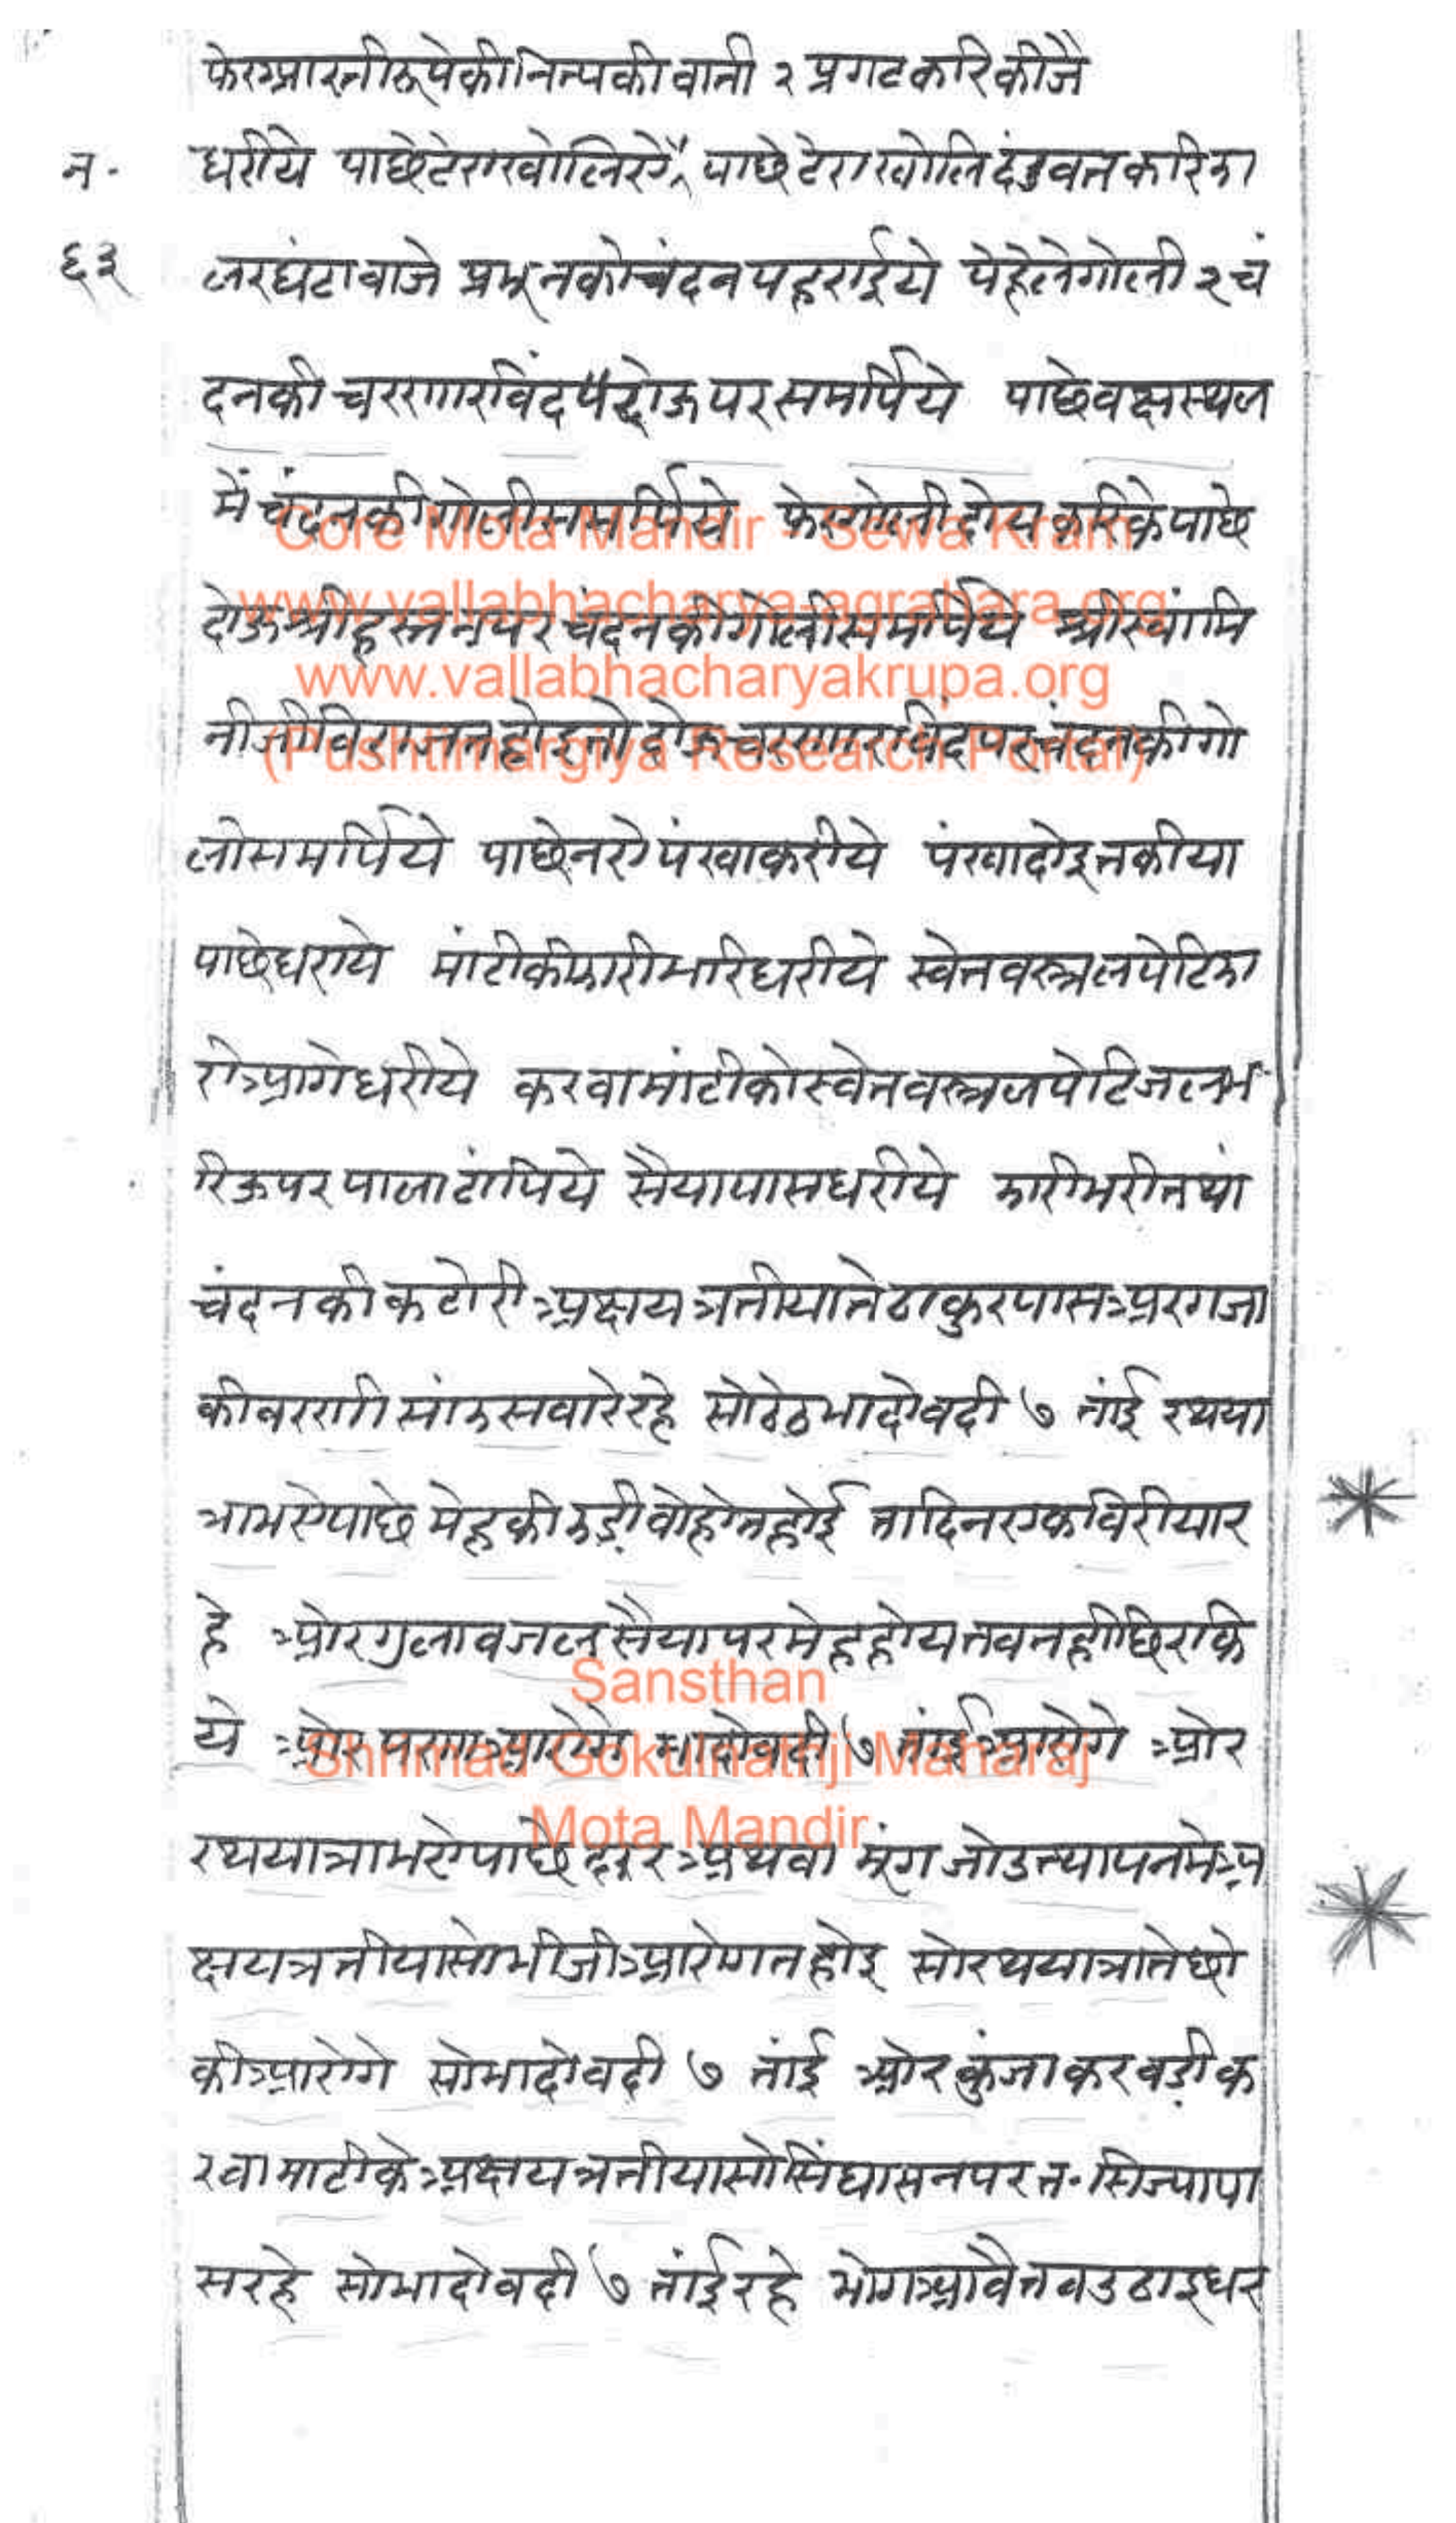 फेर आरती रूपे की नित्य की वाती २ प्रगट करि कीजै
न. धरीये पाछे टेरा खोलि पाछे टेरा खोलि दंडवत करि झा
६३ लर घंटा वाजे प्रभून को चंदन पहराईये पेहेले गोली २ चं
दन की चरणारविंद दोऊ पर समर्पिये पाछे वक्षस्थल
में चंदन की गोली समर्पिये फेर गोली दोय करिके पाछे
दोऊ श्रीहस्तन पर चंदन की गोली समर्पिये श्रीस्वांमि
नीजी विराजत होइ तो दोऊ चरणारविंद पर चंदन की गो
ली समर्पिये पाछे नऐ पंखा करीये पंखा दोइ तकीया
पाछे धराये मांटी की झारी भारि धरीये स्वेत वस्त्र लपेटि झा
री आगे धरीये करवा मांटी को स्वेत वस्त्र लपेटि जल भ
रि ऊपर पाला टांपिये सैया पास धरीये झारी भरी तथा
चंदन की कटोरी अक्षय त्रतीया ते ठाकुर पास अरगजा
की वरणी सांझ सवारे रहे सो ठेठ भादो वदी ७ तांई रथया
त्रा भऐ पाछे मेह की झड़ी वोहोत होई ता दिन एक विरीया र
हे ओर गुलाव जल सैया पर मेह होय तव नही छिरकि
ये ओर पणा आरोगे भादो वदी ७ तांई आरोगे ओर
रथयात्रा भऐ पाछे दार अथवा मूंग जो उत्थापन मे अ
क्षय त्रतीया सो भीजी आरोगत होइ सो रथयात्रा ते छो
की आरोगे सो भादो वदी ७ तांई ओर कुंजा कर वड़ी क
रवा माटी के अक्षय त्रतीया सो सिंघासन पर त. सिज्या पा
स रहे सो भादो वदी ७ तांई रहे भोग आवै तव उठाइ धर
Core Mota Mandir - Sewa Kram
www.vallabhacharya-agrahara.org
www.vallabhacharyakrupa.org
(Pushtimargiya Research Portal)
Sansthan
Shrimad Gokulnathji Maharaj
Mota Mandir